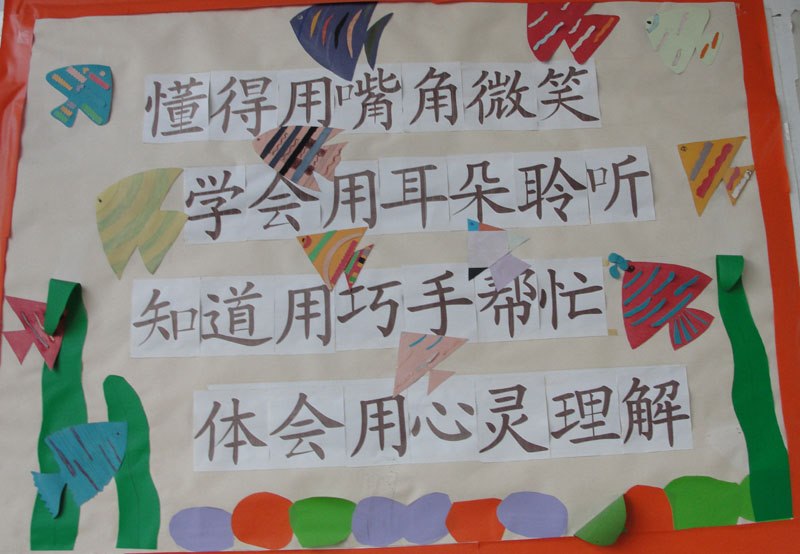 懂得用嘴角微笑
学会用耳朵聆听
知道用巧手帮忙
体会用心灵理解